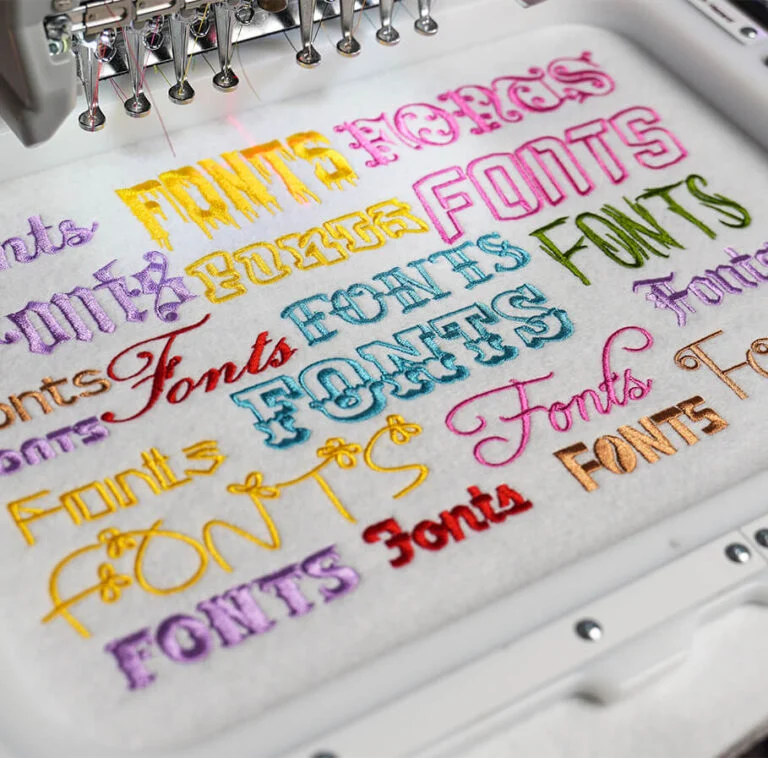 FONTS
FONTS
nts
Fonts
FONTS
FONTS
onts
FONTS
FONTS
Fonts
onts
Fonts
FONTS
Fonts
Fo
ONTS
Fonts
FONTS
FONTS
FONTS
Fonts